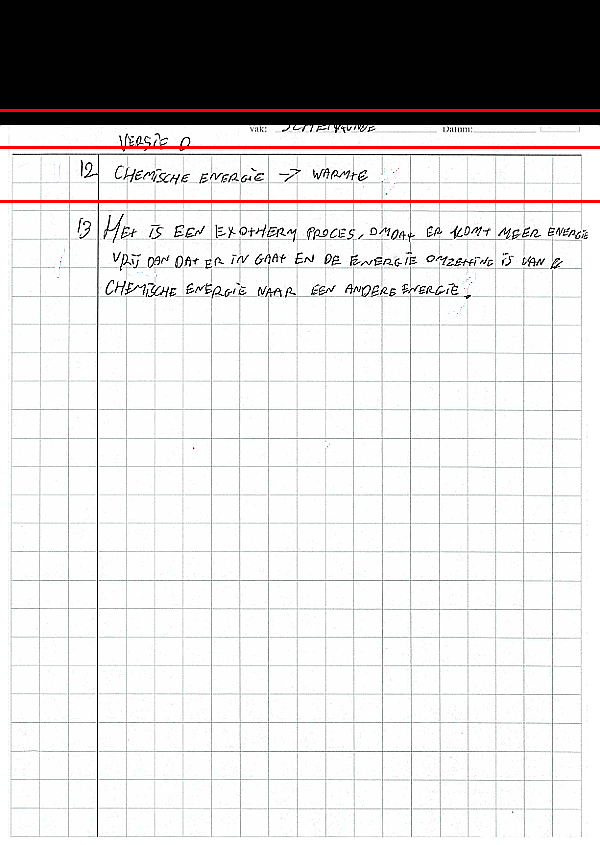 Vak: SCHEIKUNDE Datum:
VERSIE D
12 CHEMISCHE ENERGIE → WARMTE
13 HET IS EEN EXOTHERM PROCES, OMDAT ER KOMT MEER ENERGIE
VRIJ DAN DAT ER IN GAAT EN DE ENERGIE OMZETTING IS VAN
CHEMISCHE ENERGIE NAAR EEN ANDERE ENERGIE.